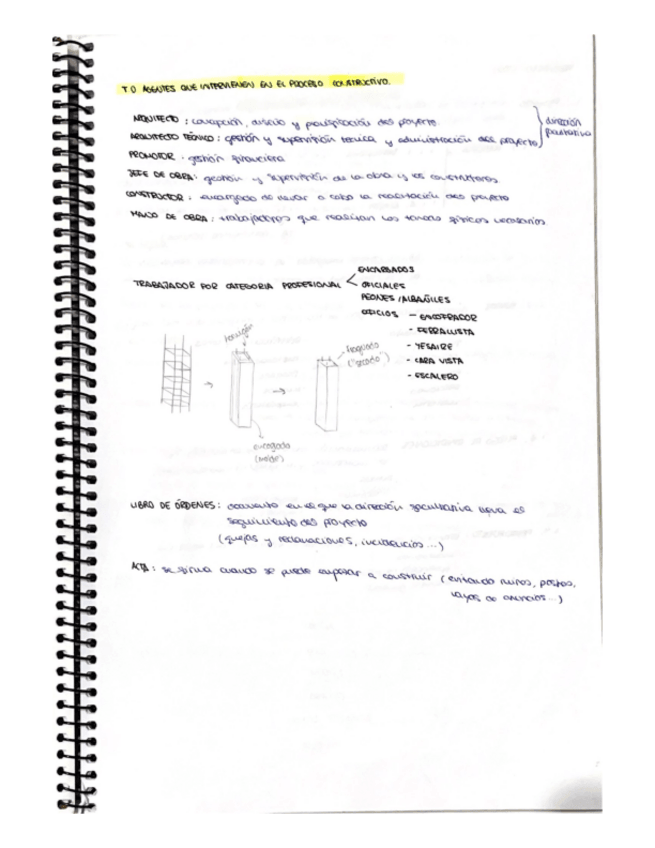 T.0 AGENTES QUE INTERVIENEN EN EL PROCESO CONSTRUCTIVO.
ARQUITECTO: concepción, diseño y planificación del proyecto
ARQUITECTO TÉCNICO: gestión y supervisión técnica y administración del proyecto
dirección facultativa
PROMOTOR: gestión financiera
JEFE DE OBRA: gestión y supervisión de la obra y los constructores
CONSTRUCTOR: encargado de llevar a cabo la realización del proyecto
MANO DE OBRA: trabajadores que realizan las tareas físicas necesarias
TRABAJADOR POR CATEGORIA PROFESIONAL
ENCARGADOS
OFICIALES
PEONES / ALBAÑILES
OFICIOS - ENCOFRADOR
- FERRALLISTA
- YESAIRE
- CARA VISTA
- ESCALERO
fraguado
("secado")
encofrado
(molde)
LIBRO DE ÓRDENES: documento en el que la dirección facultativa lleva el
seguimiento del proyecto
(quejas y reclamaciones, incidencias...)
ACTA: se firma cuando se puede empezar a construir (evitando muros, postes,
vayas de anuncios...)